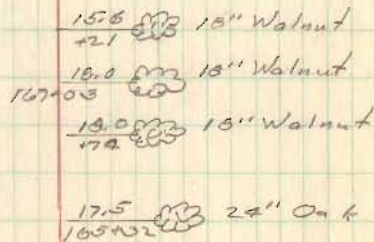 15.6 18" Walnut
+21
18.0 18" Walnut
167+03
18.0 18" Walnut
+74
17.5 24" Oak
165+32